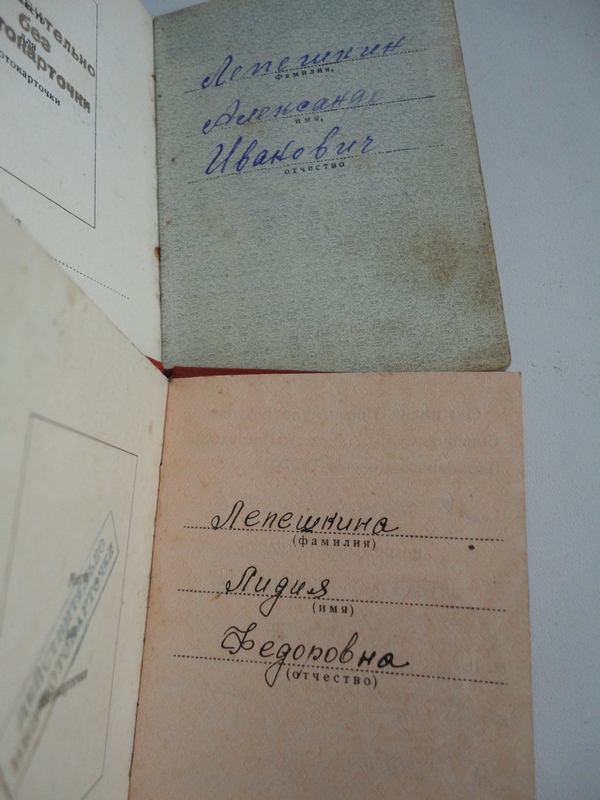 без
фотокарточки
Лепешкин
фамилия,
Александр
имя,
Иванович
отчество
Лепешкина
(фамилия)
Лидия
(имя)
Федоровна
(отчество)
ДЕЙСТВИТЕЛЬНО
БЕЗ ФОТОКАРТОЧКИ